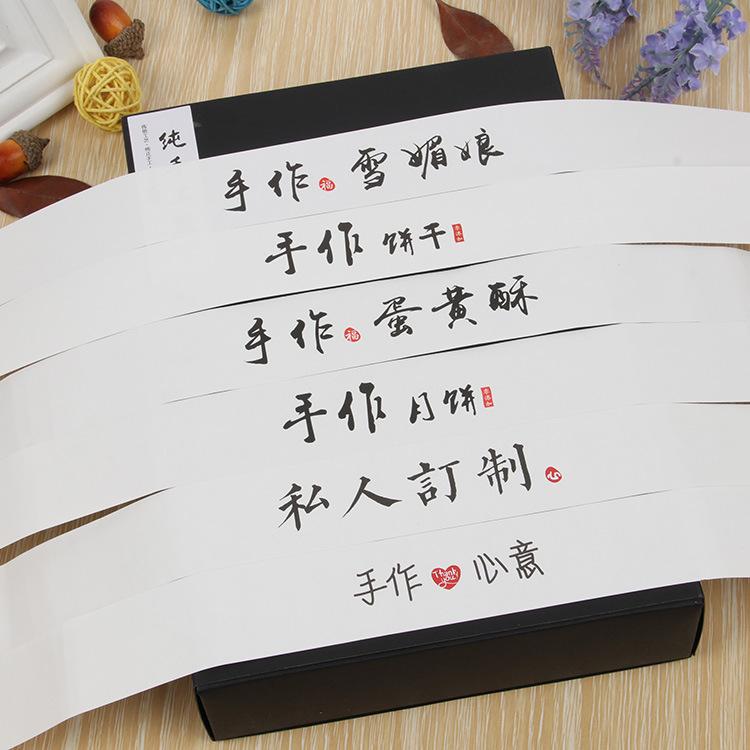 纯手
手作 福 雪媚娘
手作 饼干
手作 福 蛋黄酥
手作 月饼
私人訂制 心
手作 Thank you 心意